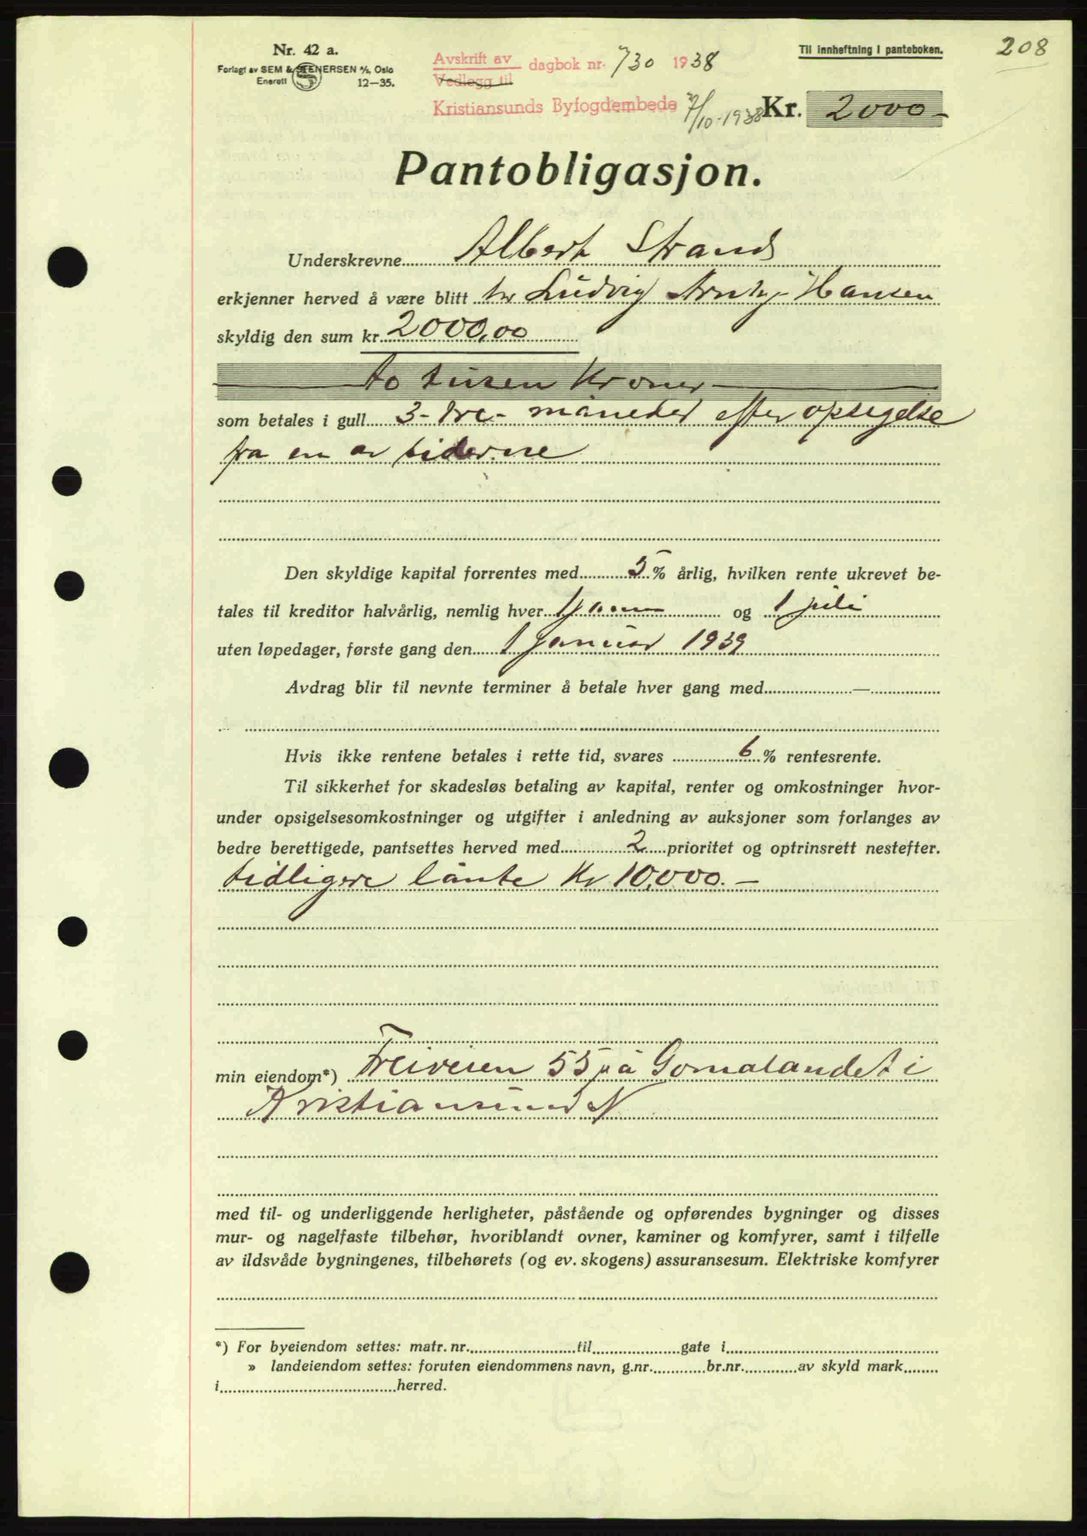 Nr. 42 a.
Forlagt av SEM & STENERSEN A/S, Oslo
Enerett 12—35.
Avskrift av
Vedlegg til
dagbok nr. 730 1938
Kristiansunds Byfogdembede 7/10-1938
Til innheftning i panteboken.
208
Kr. 2000-
Pantobligasjon.
Underskrevne Albert Strand
erkjenner herved å være blitt hr Ludvig Hansen
skyldig den sum kr. 2000,00
To tusen Kroner
som betales i gull 3- tre- måneder efter opsigelse
fra en av siderne
Den skyldige kapital forrentes med 5 % årlig, hvilken rente ukrevet be-
tales til kreditor halvårlig, nemlig hver 1 januar og 1 juli
uten løpedager, første gang den 1 januar 1939
Avdrag blir til nevnte terminer å betale hver gang med —
Hvis ikke rentene betales i rette tid, svares 6 % rentesrente.
Til sikkerhet for skadesløs betaling av kapital, renter og omkostninger hvor-
under opsigelsesomkostninger og utgifter i anledning av auksjoner som forlanges av
bedre berettigede, pantsettes herved med 2 prioritet og optrinsrett nestefter.
tidligere lånte Kr 10,000.-
min eiendom*) Freiveien 55 på Gomalandet i
Kristiansund N
med til- og underliggende herligheter, påstående og opførendes bygninger og disses
mur- og nagelfaste tilbehør, hvoriblandt ovner, kaminer og komfyrer, samt i tilfelle
av ildsvåde bygningenes, tilbehørets (og ev. skogens) assuransesum. Elektriske komfyrer
*) For byeiendom settes: matr. nr. til gate i
» landeiendom settes: foruten eiendommens navn, g.nr. br.nr. av skyld mark
i herred.